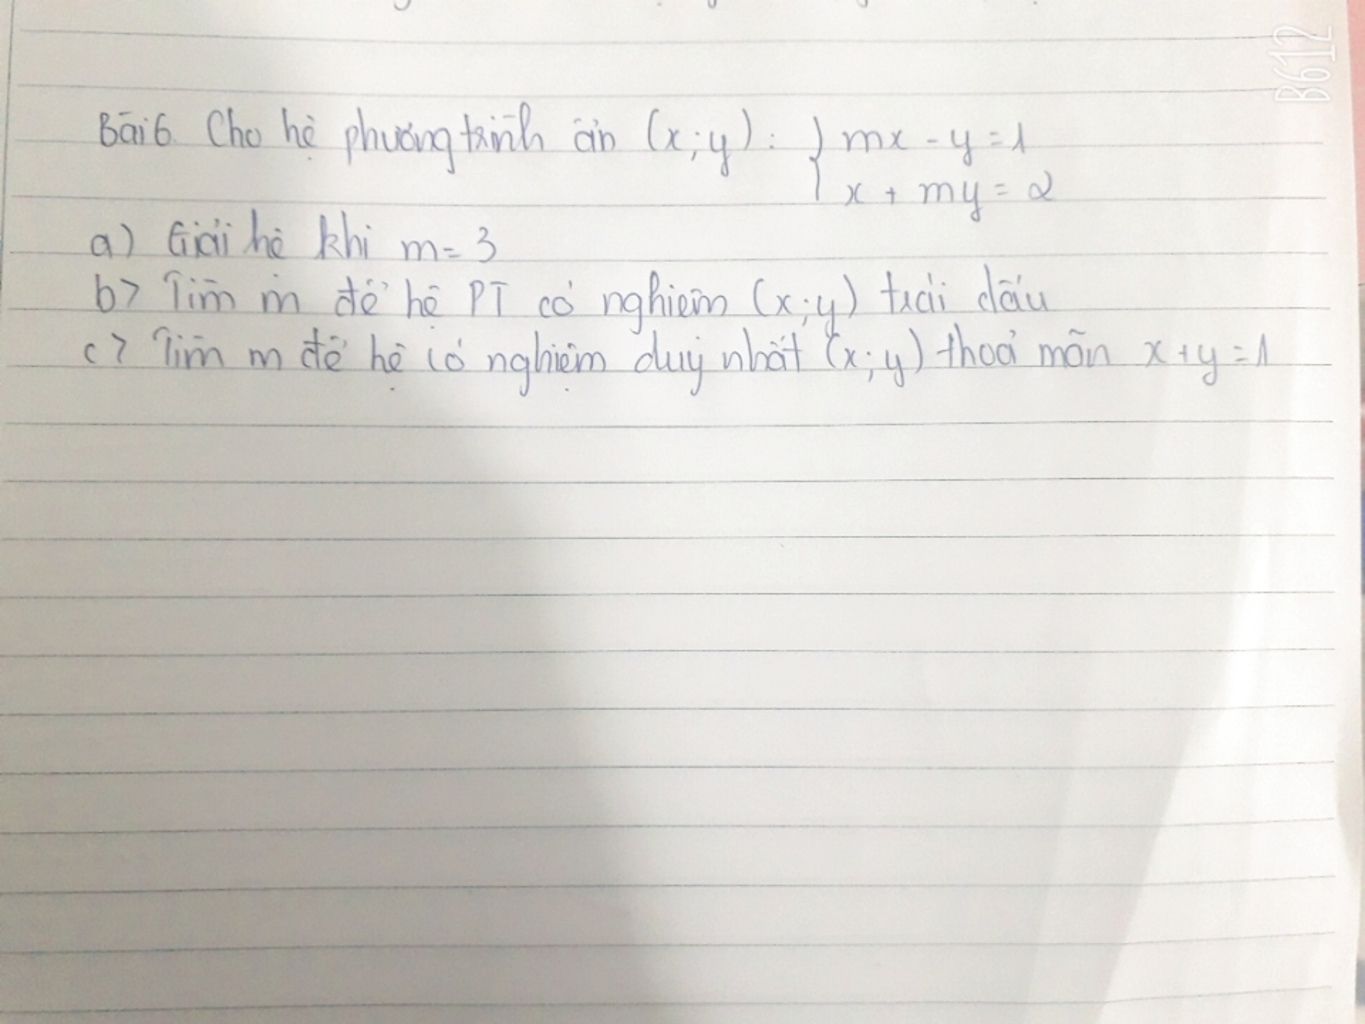 Bài 6. Cho hệ phương trình ẩn (x; y): { mx - y = 1
x + my = 2
a) Giải hệ khi m = 3
b) Tìm m để hệ PT có nghiệm (x; y) trái dấu
c) Tìm m để hệ có nghiệm duy nhất (x; y) thoả mãn x + y = 1
B612